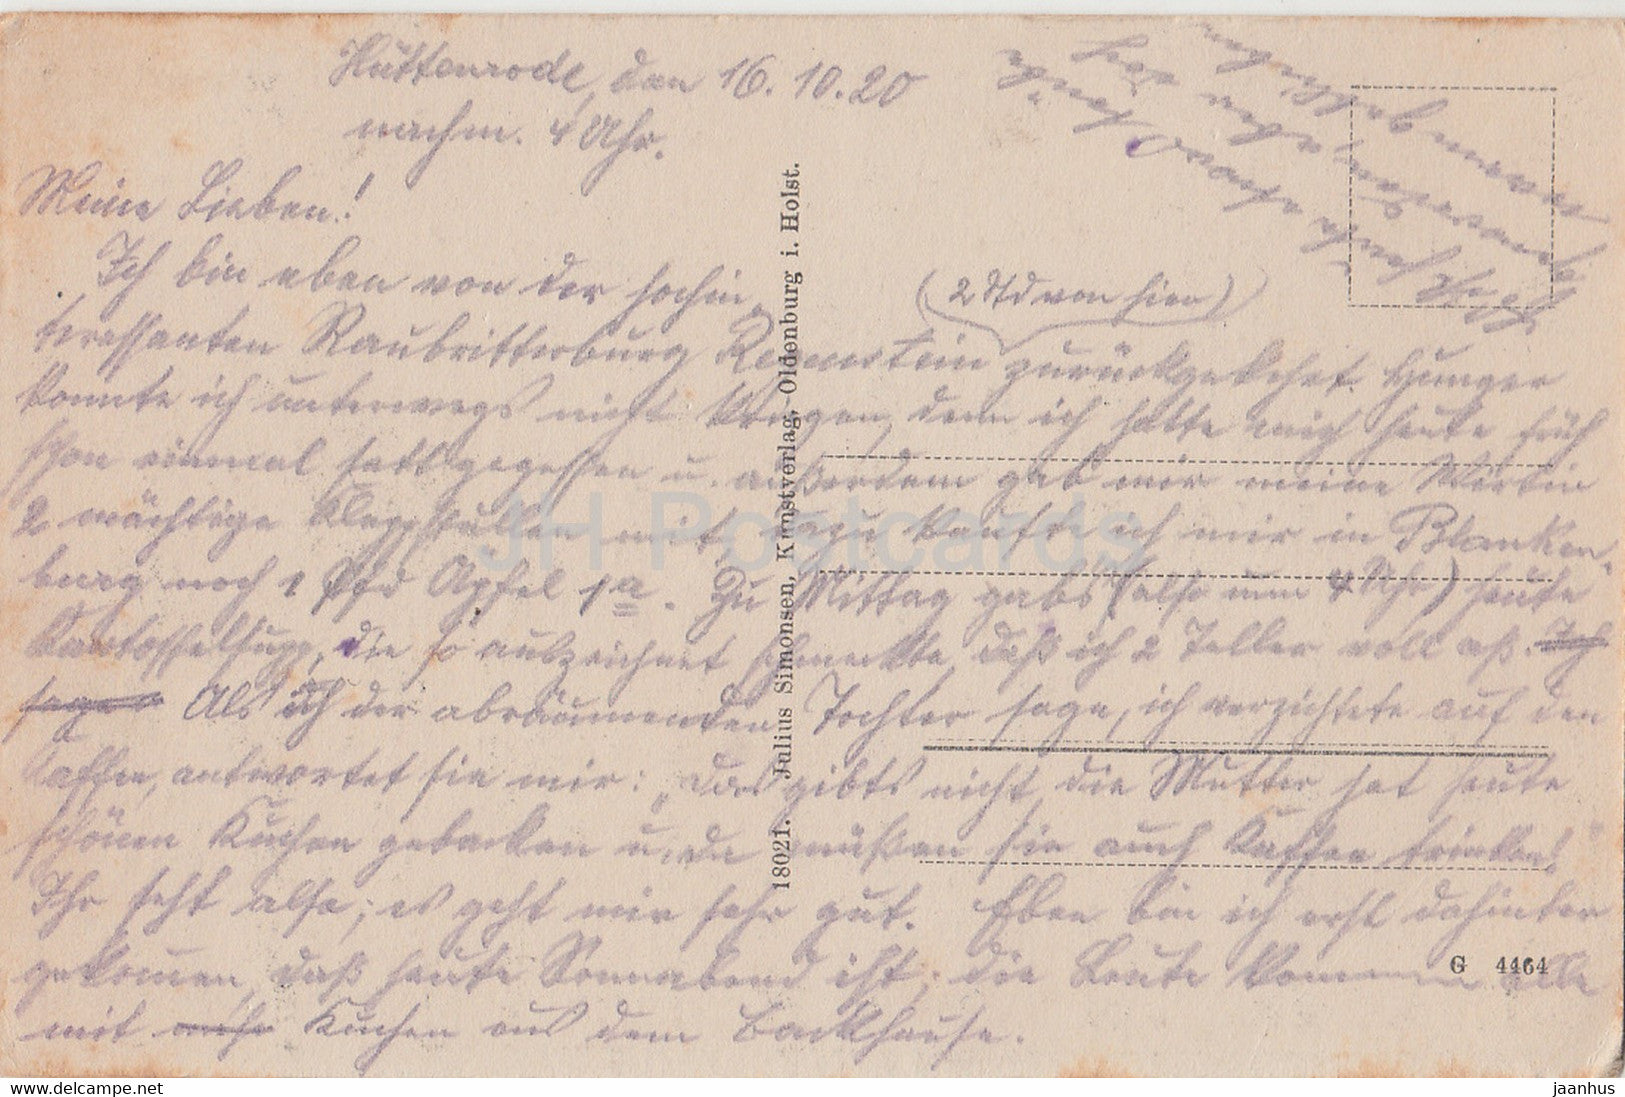 Hüttenrode, den 16.10.20
nachm. 4 Uhr.
Meine Lieben!
Ich bin eben von der hochin-
(2 Std von hier)
teressanten Raubritterburg Regenstein zurückgekehrt. Hunger
konnte ich unterwegs nicht kriegen, denn ich hatte mich heute früh
schon einmal satt gegessen u. außerdem gab mir meine Wirtin
2 mächtige Klappstullen mit, dazu kaufte ich mir in Blanken-
burg noch 1 Pfd Äpfel 1a. Zu Mittag gabs (also um 4 Uhr) heute
Kartoffelsupp, die so ausgezeichnet schmeckte, daß ich 2 Teller voll aß. Ich
sage Als ich der abräumenden Tochter sage, ich verzichtete auf den
Kaffee, antwortet sie mir: „Das gibts nicht, die Mutter hat heute
schönen Kuchen gebacken u. da müßen sie auch Kaffee trinken!
Ihr seht also, es geht mir sehr gut. Eben bin ich erst dahinter
gekommen, daß heute Sonnabend ist, die Leute kommen alle
mit Kuchen aus dem Backhause.
18021. Julius Simonsen, Kunstverlag, Oldenburg i. Holst.
G 4464
JH Postcards
www.delcampe.net
jaanhus